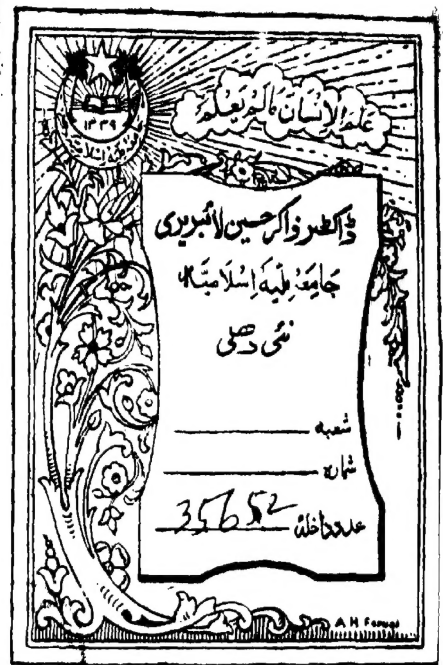 علم الانسان مالم یعلم
۱۳۳۹
ڈاکٹر ذاکر حسین لائبریری
جامعہ ملیہ اسلامیہ
نئی دھلی
شعبہ
شمارہ
عدد داخلہ 35652